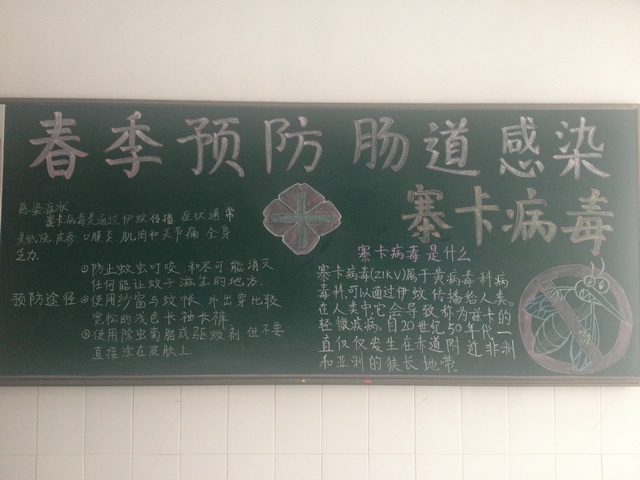 春季预防肠道感染
寨卡病毒
感染症状
寨卡病毒是通过伊蚊传播 症状通常
是低烧 皮疹 口膜炎 肌肉和关节痛 全身
乏力.
预防途径
①防止蚊虫叮咬 和尽可能消灭
任何能让蚊子滋生的地方.
②使用纱窗与蚊帐 外出穿比较
宽松的浅色长袖长裤
③使用除虫菊酯或驱蚊剂 但不要
直接涂在皮肤上
寨卡病毒是什么
寨卡病毒(ZIKV)属于黄病毒科病
毒科,可以通过伊蚊传播给人类。
在人类中,它会导致称为兹卡的
轻微疾病,自20世纪50年代一
直仅仅发生在赤道附近非洲
和亚洲的狭长地带